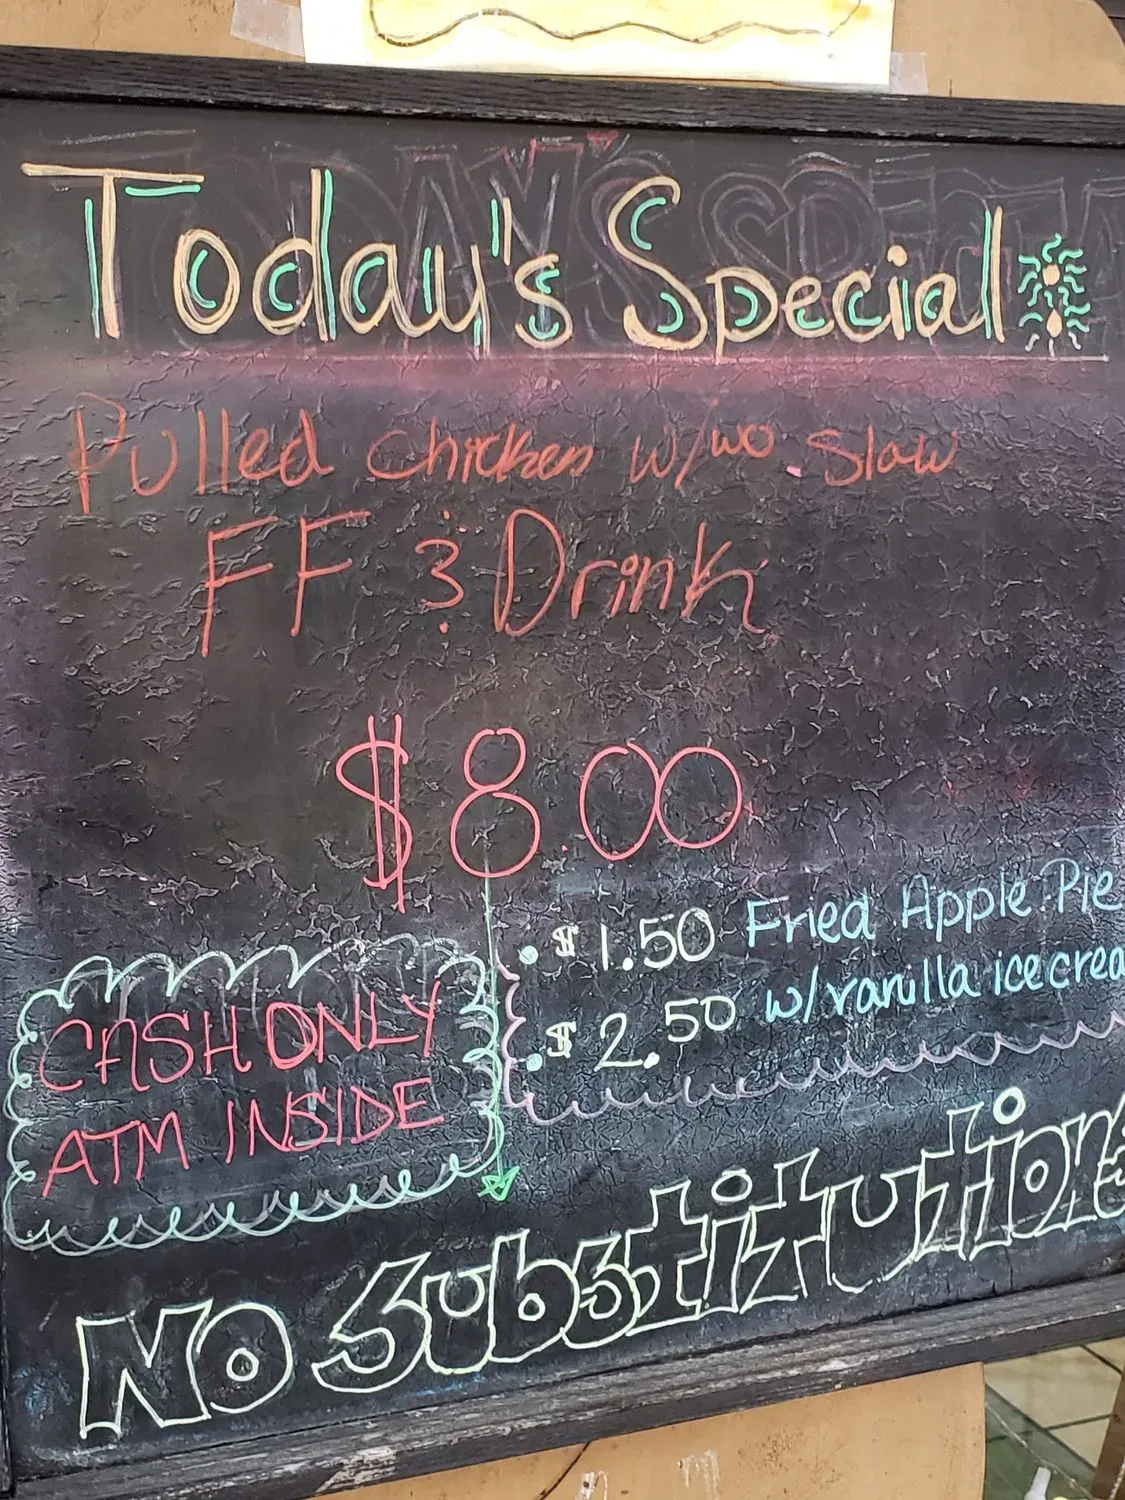 Today's Special
Pulled chicken w/wo slaw
FF & Drink
$8.00
CASH ONLY
ATM INSIDE
• $1.50 Fried Apple Pie
• $2.50 w/vanilla ice crea
NO Substitutions